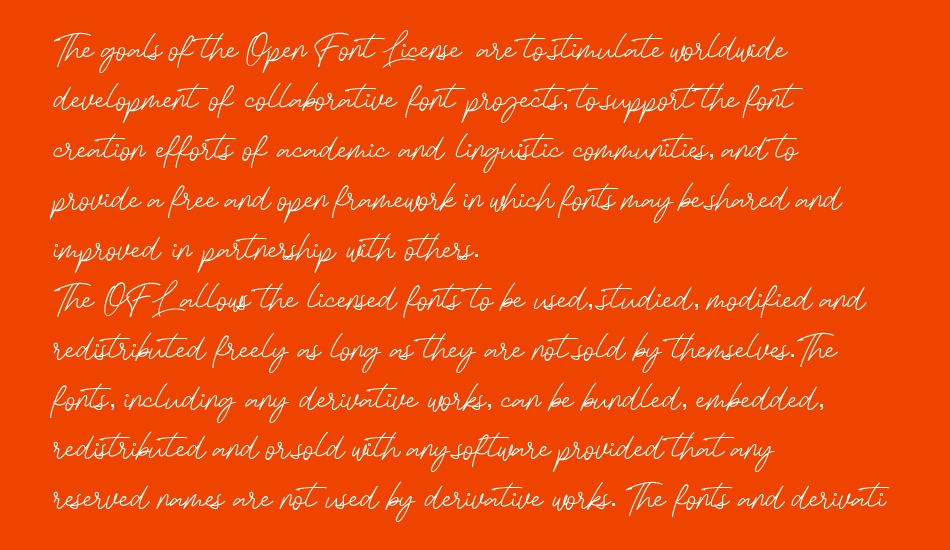 The goals of the Open Font License are to stimulate worldwide
development of collaborative font projects, to support the font
creation efforts of academic and linguistic communities, and to
provide a free and open framework in which fonts may be shared and
improved in partnership with others.
The OFL allows the licensed fonts to be used, studied, modified and
redistributed freely as long as they are not sold by themselves. The
fonts, including any derivative works, can be bundled, embedded,
redistributed and or sold with any software provided that any
reserved names are not used by derivative works. The fonts and derivati